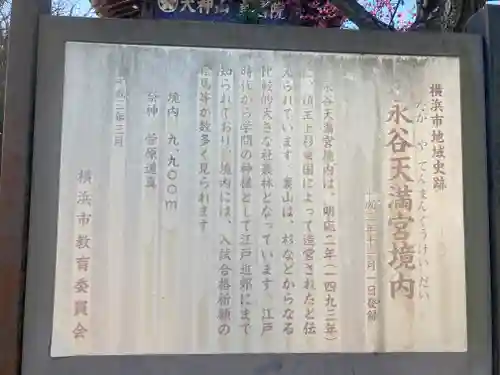 天神山
横浜市地域史跡
ながやてんまんぐうけいだい
永谷天満宮境内
平成二年十二月一日登録
永谷天満宮境内は、明応二年(一四九三年)
に、領主上杉乗国によって造営されたと伝
えられています。裏山は、杉などからなる
比較的大きな社叢林となっています。江戸
時代から学問の神様として江戸近郊にまで
知られており、境内には、入試合格祈願の
絵馬等が数多く見られます
境内 九、九〇〇m
祭神 菅原道真
平成二年三月
横浜市教育委員会